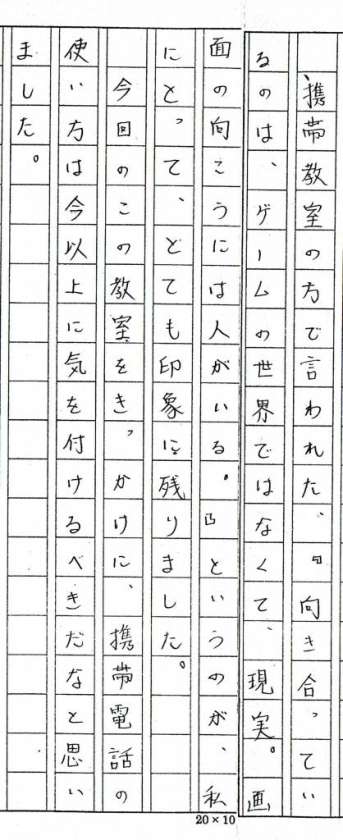 携帯教室の方で言われた、『向き合ってい
るのは、ゲームの世界ではなくて、現実。画
面の向こうには人がいる。』というのが、私
にとって、とても印象に残りました。
今回のこの教室をきっかけに、携帯電話の
使い方は今以上に気を付けるべきだなと思い
ました。
20×10